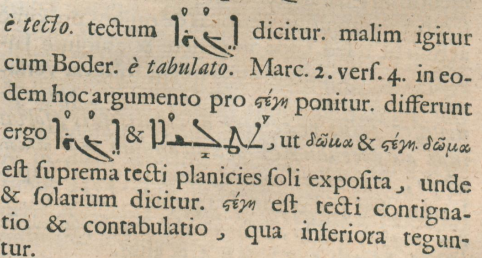 è tecto. tectum ܐܓܪܐ dicitur. malim igitur
cum Boder. è tabulato. Marc. 2. verſ. 4. in eo-
dem hoc argumento pro ϛέγη ponitur. differunt
ergo ܐܓܪܐ & , ut δῶμα & ϛέγη. δῶμα
eſt ſuprema tecti planicies ſoli expoſita, unde
& ſolarium dicitur. ϛέγη eſt tecti contigna-
tio & contabulatio, qua inferiora tegun-
tur.